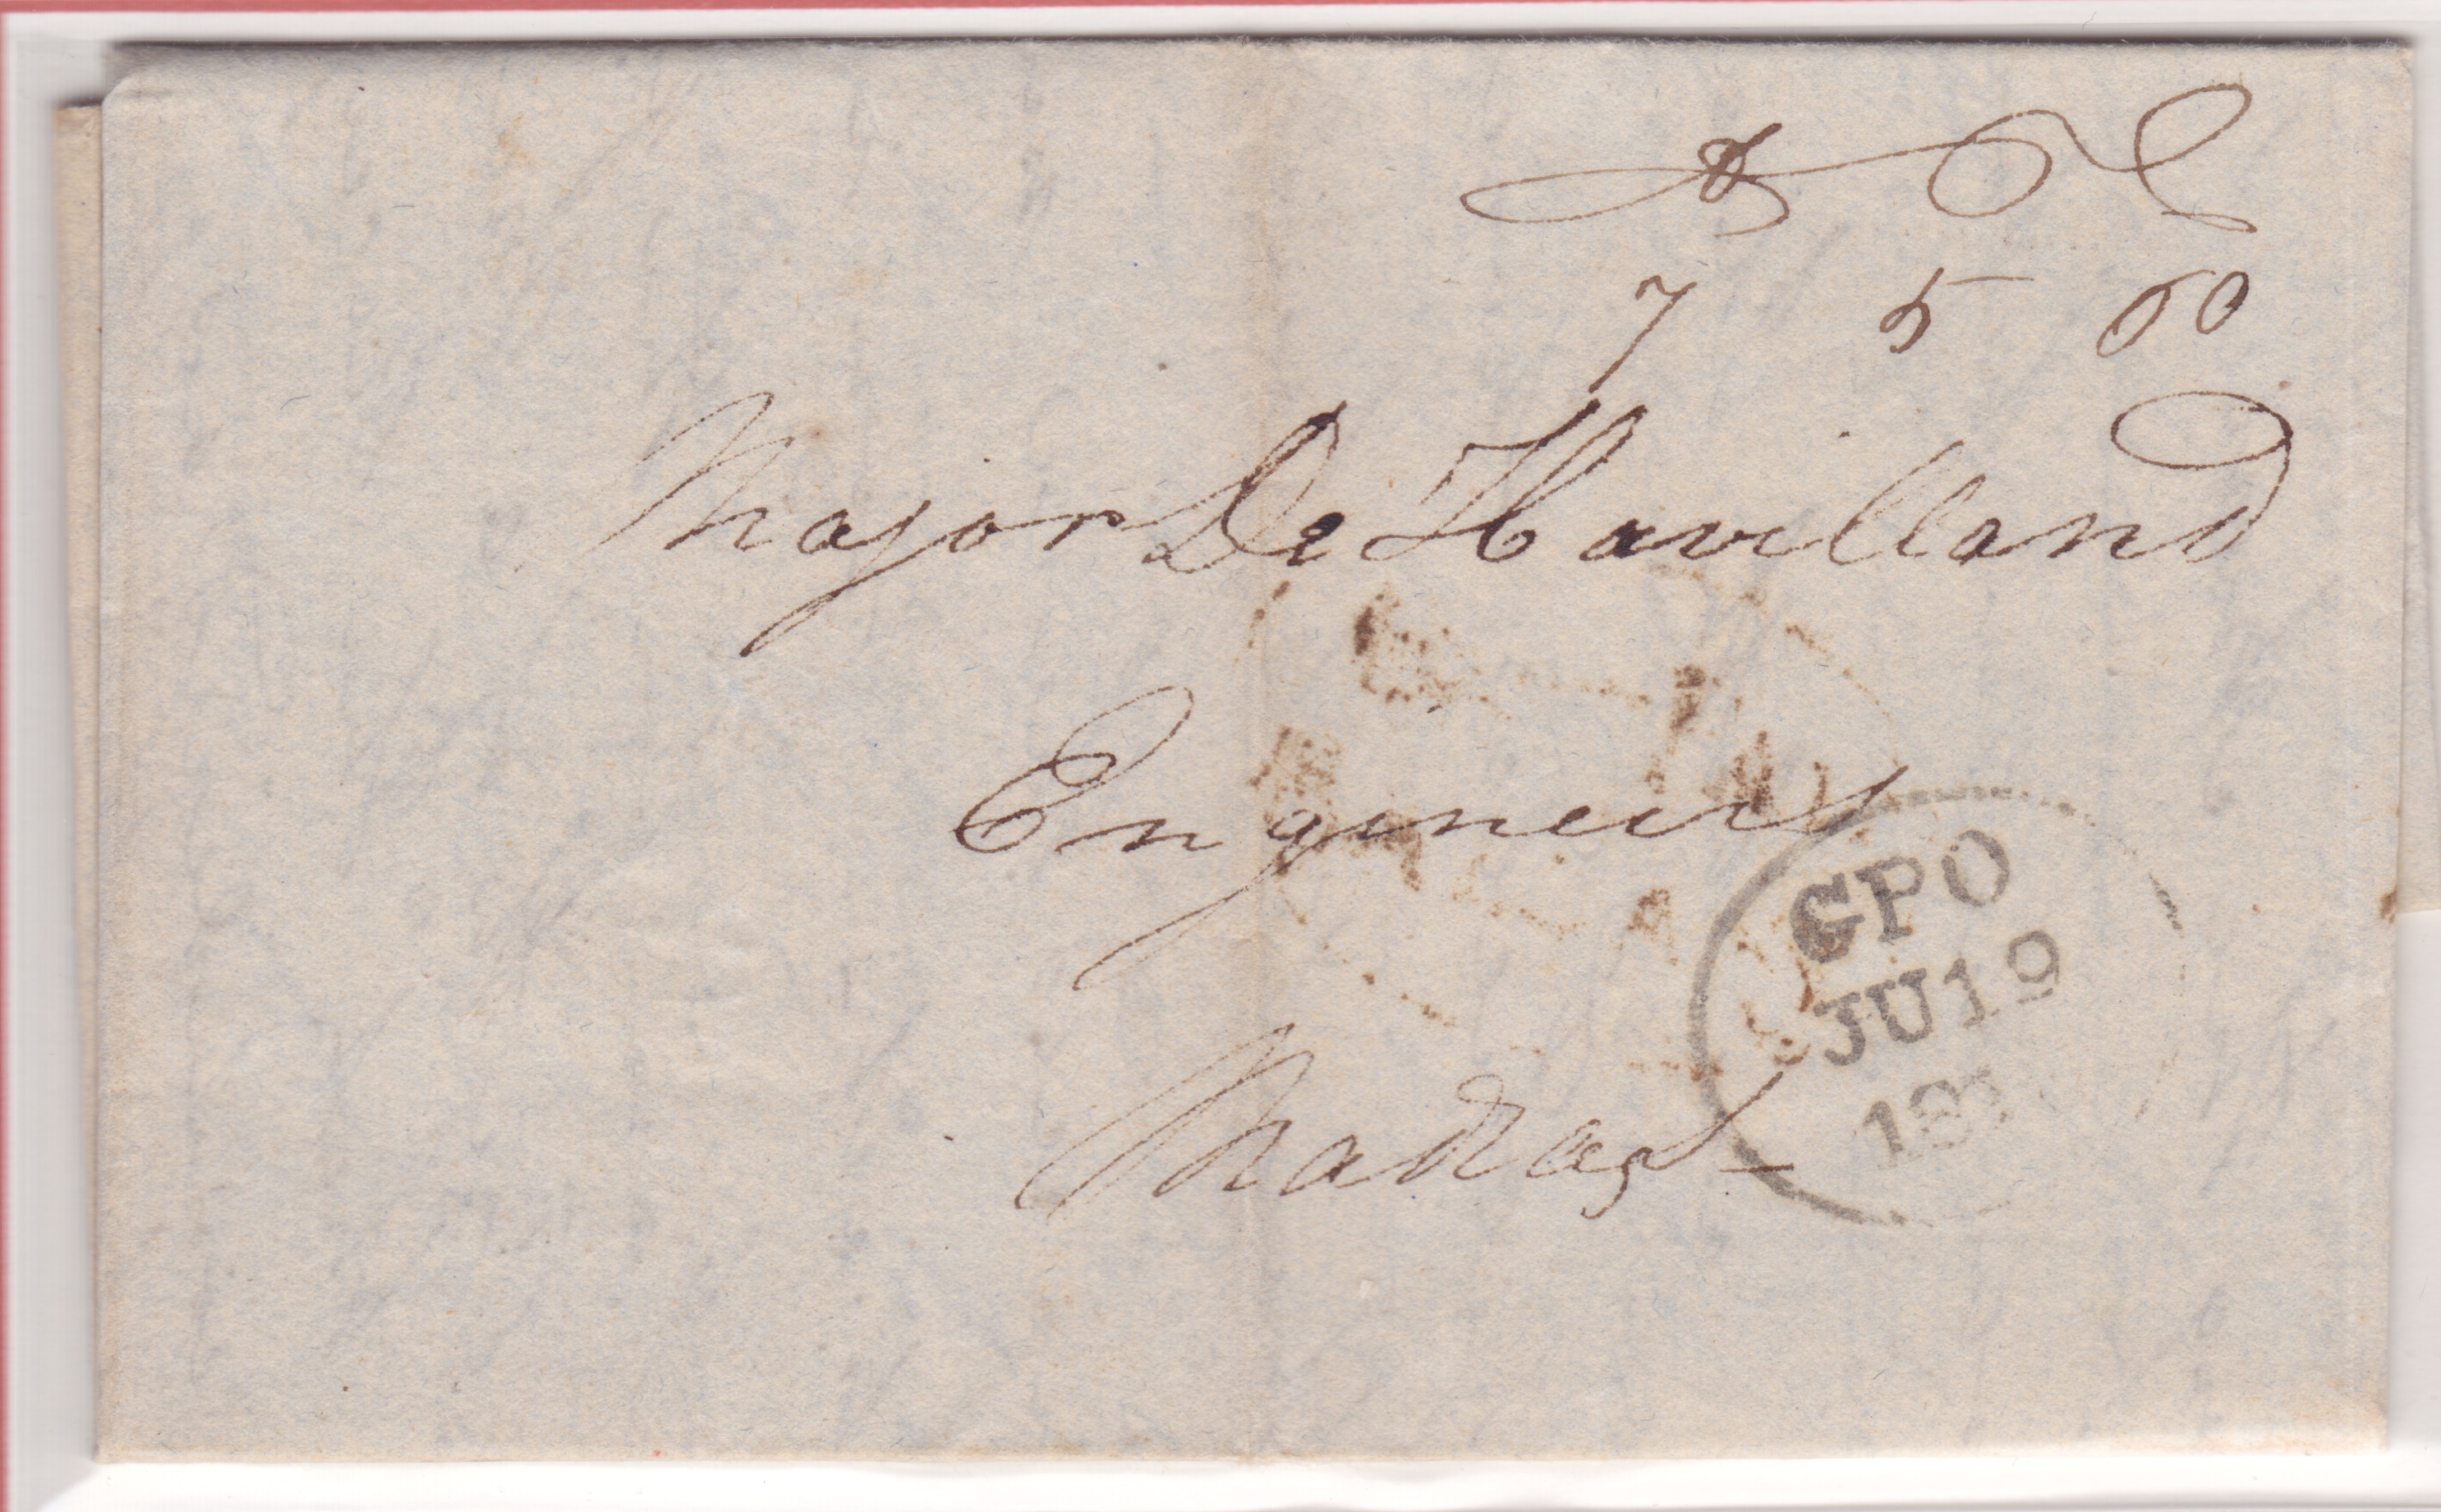 7 5 60
Major De Havilland
Engineers
Madras -
GPO
JU 19